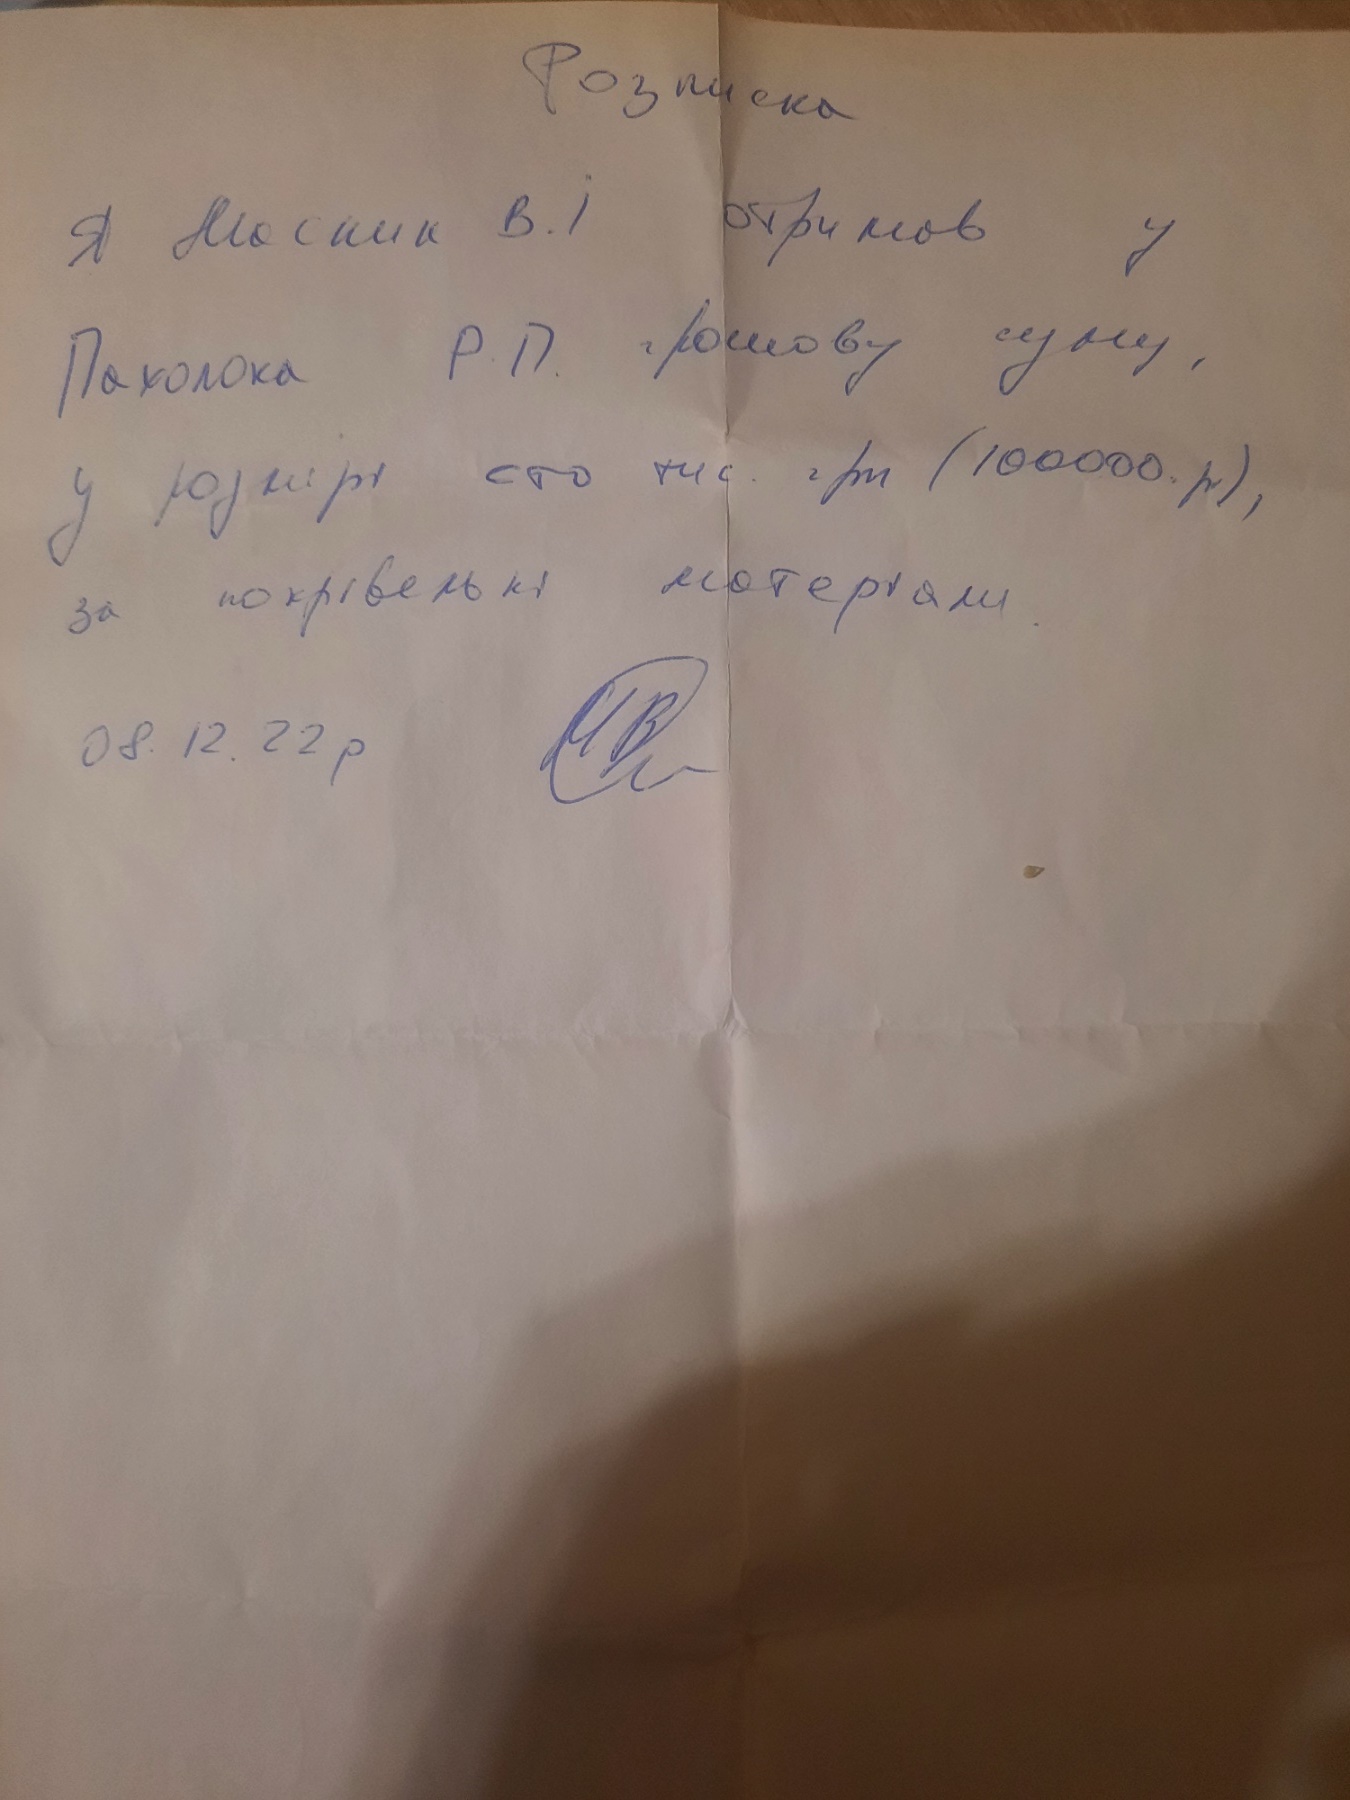 Розписка
Я Масник В.І отримав у
Пахолока Р.П. грошову суму,
у розмірі сто тис. грн (100000.р),
за покрівельні матеріали.
08.12.22р